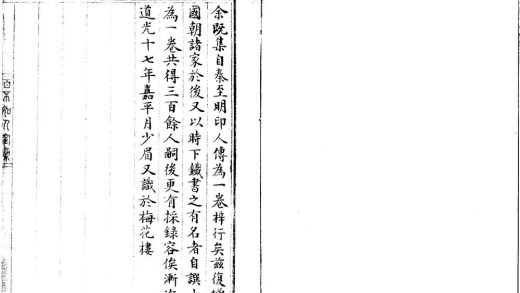 余既集自秦至明印人傳為一卷梓行矣茲復增
國朝諸家於後又以時下鐵書之有名者自譔
為一卷共得三百餘人嗣後更有採錄容俟漸次
道光十七年嘉平月少眉又識於梅花樓